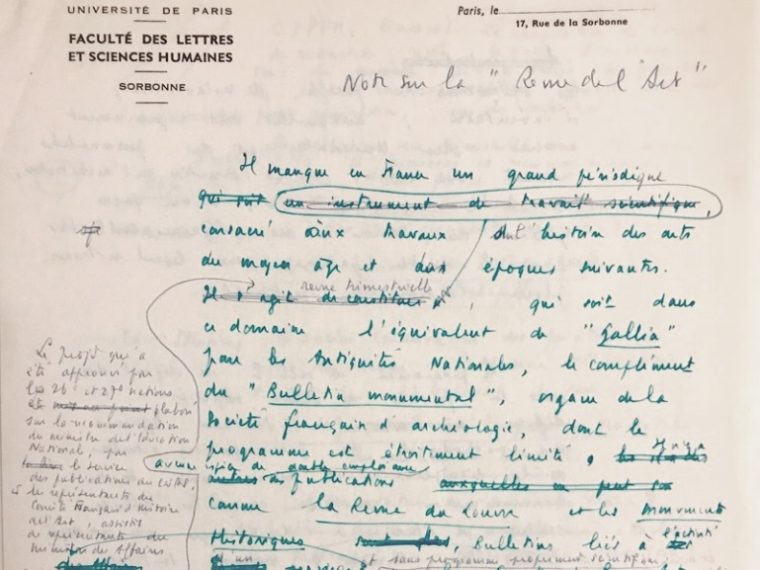 UNIVERSITÉ DE PARIS
FACULTÉ DES LETTRES
ET SCIENCES HUMAINES
SORBONNE
Paris, le
17, Rue de la Sorbonne
Note sur la "Revue de l'Art"
Il manque en France un grand périodique
qui soit un instrument de travail scientifique,
consacré aux travaux sur l'histoire des arts
du moyen âge et des époques suivantes.
revue trimestrielle
Il s'agit de constituer, qui soit dans
ce domaine l'équivalent de "Gallia"
pour les Antiquités Nationales, le complément
du "Bulletin monumental", organe de la
Société française d'archéologie, dont le
programme est étroitement limité,
aucun risque de double emploi avec
publications auxquelles on peut
comme la Revue du Louvre et les Monuments
Historiques, Bulletins liés à l'activité
et sans programme proprement scientifique
Le projet qui a
été approuvé par
les 26e et 27e sections
élaboré
sur la recommandation
du ministre de l'Education
Nationale, par
le service
des publications du CNRS,
les représentants du
Comité français d'histoire
de l'Art, assistés
de représentants du
Ministère des Affaires